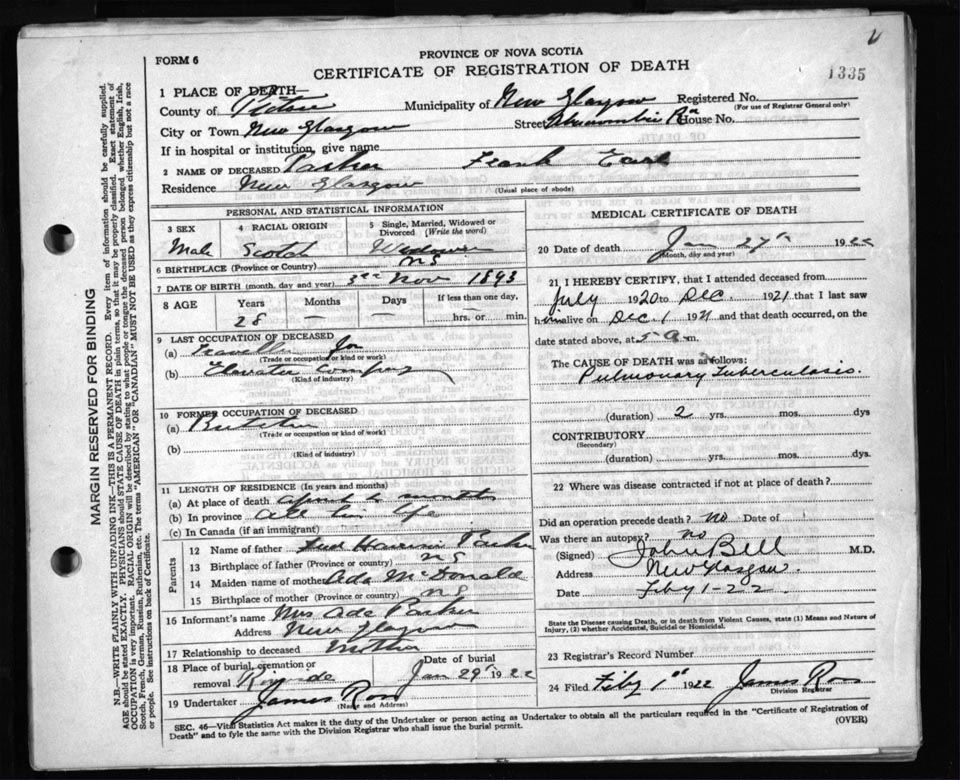 FORM 6
PROVINCE OF NOVA SCOTIA
CERTIFICATE OF REGISTRATION OF DEATH
1335
MARGIN RESERVED FOR BINDING
N.B.—WRITE PLAINLY WITH UNFADING INK—THIS IS A PERMANENT RECORD. Every item of information should be carefully supplied.
AGE should be stated EXACTLY. PHYSICIANS should STATE CAUSE OF DEATH in plain terms, so that it may be properly classified. Exact statement of
OCCUPATION is very important. RACIAL ORIGIN will be described by stating to what people or tongue the deceased person belonged whether English, Irish,
Scotch, French, German, Russian, Ruthenian, etc. The terms "AMERICAN" OR "CANADIAN" MUST NOT BE USED as they express citizenship but not a race
or people. See instructions on back of Certificate.
1 PLACE OF DEATH
County of Pictou Municipality of New Glasgow Registered No.
(For use of Registrar General only)
City or Town New Glasgow Street Abercrombie Rd House No.
If in hospital or institution, give name
2 NAME OF DECEASED Parker Frank Earl
Residence New Glasgow
(Usual place of abode)
PERSONAL AND STATISTICAL INFORMATION
3 SEX Male
4 RACIAL ORIGIN Scotch
5 Single, Married, Widowed or Divorced (Write the word) Widower
6 BIRTHPLACE (Province or Country) NS
7 DATE OF BIRTH (month, day and year) 3rd Nov 1893
8 AGE Years 28 Months — Days — If less than one day, hrs. or min.
9 LAST OCCUPATION OF DECEASED
(a) Traveller for
(Trade or occupation or kind of work)
(b) Elevator Company
(Kind of industry)
10 FORMER OCCUPATION OF DECEASED
(a) Butcher
(Trade or occupation or kind of work)
(b)
(Kind of industry)
11 LENGTH OF RESIDENCE (In years and months)
(a) At place of death months
(b) In province all his life
(c) In Canada (if an immigrant)
Parents
12 Name of father Parker
13 Birthplace of father (Province or country) NS
14 Maiden name of mother Ada McDonald
15 Birthplace of mother (Province or country) NS
16 Informant's name Mrs Ada Parker
Address New Glasgow
17 Relationship to deceased Mother
18 Place of burial, cremation or removal Date of burial Jan 29th 1922
19 Undertaker James Ross
(Name and Address)
MEDICAL CERTIFICATE OF DEATH
20 Date of death Jan 27th 1922
(Month, day and year)
21 I HEREBY CERTIFY, that I attended deceased from
July 1920 to Dec. 1921 that I last saw
him alive on Dec. 1 1921 and that death occurred, on the
date stated above, at 5 a m.
The CAUSE OF DEATH was as follows:
Pulmonary Tuberculosis.
(duration) 2 yrs. mos. dys
CONTRIBUTORY
(Secondary)
(duration) yrs. mos. dys.
22 Where was disease contracted if not at place of death?
Did an operation precede death? no Date of
Was there an autopsy? no
(Signed) John Bell M.D.
Address New Glasgow.
Date Feby 1-22
State the Disease causing Death, or in death from Violent Causes, state (1) Means and Nature of
Injury, (2) whether Accidental, Suicidal or Homicidal.
23 Registrar's Record Number
24 Filed Feby 1st 1922 James Ross
Division Registrar
SEC. 46—Vital Statistics Act makes it the duty of the Undertaker or person acting as Undertaker to obtain all the particulars required in the "Certificate of Registration of
Death" and to fyle the same with the Division Registrar who shall issue the burial permit. (OVER)